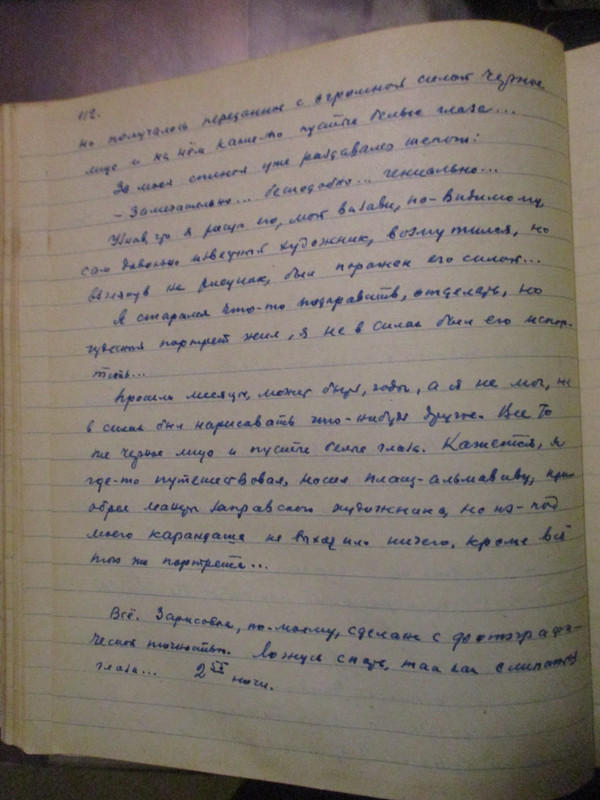 112.
но получалось переданное с огромной силой черное
лицо и на нём какие-то пустые белые глаза...
За моей спиной уже раздавался шепот:
– Замечательно... бесподобно... гениально...
Узнав, что я рисую его, мой визави, по-видимому,
сам довольно известный художник, возмутился, но
взглянув на рисунок, был поражен его силой...
Я старался что-то подправить, отделать, но
чудесный портрет жил, я не в силах был его испор-
тить...
Прошли месяцы, может быть, годы, а я не мог, не
в силах был нарисовать что-нибудь другое. Все то
же черное лицо и пустые белые глаза. Кажется, я
где-то путешествовал, носил плащ-альмавиву, при-
обрел манеры заправского художника, но из-под
моего карандаша не выходило ничего, кроме всё
того же портрета...
Всё. Зарисовка, по-моему, сделана с фотографи-
ческой точностью. Ложусь спать, так как слипаются
глаза... 2 ночи.